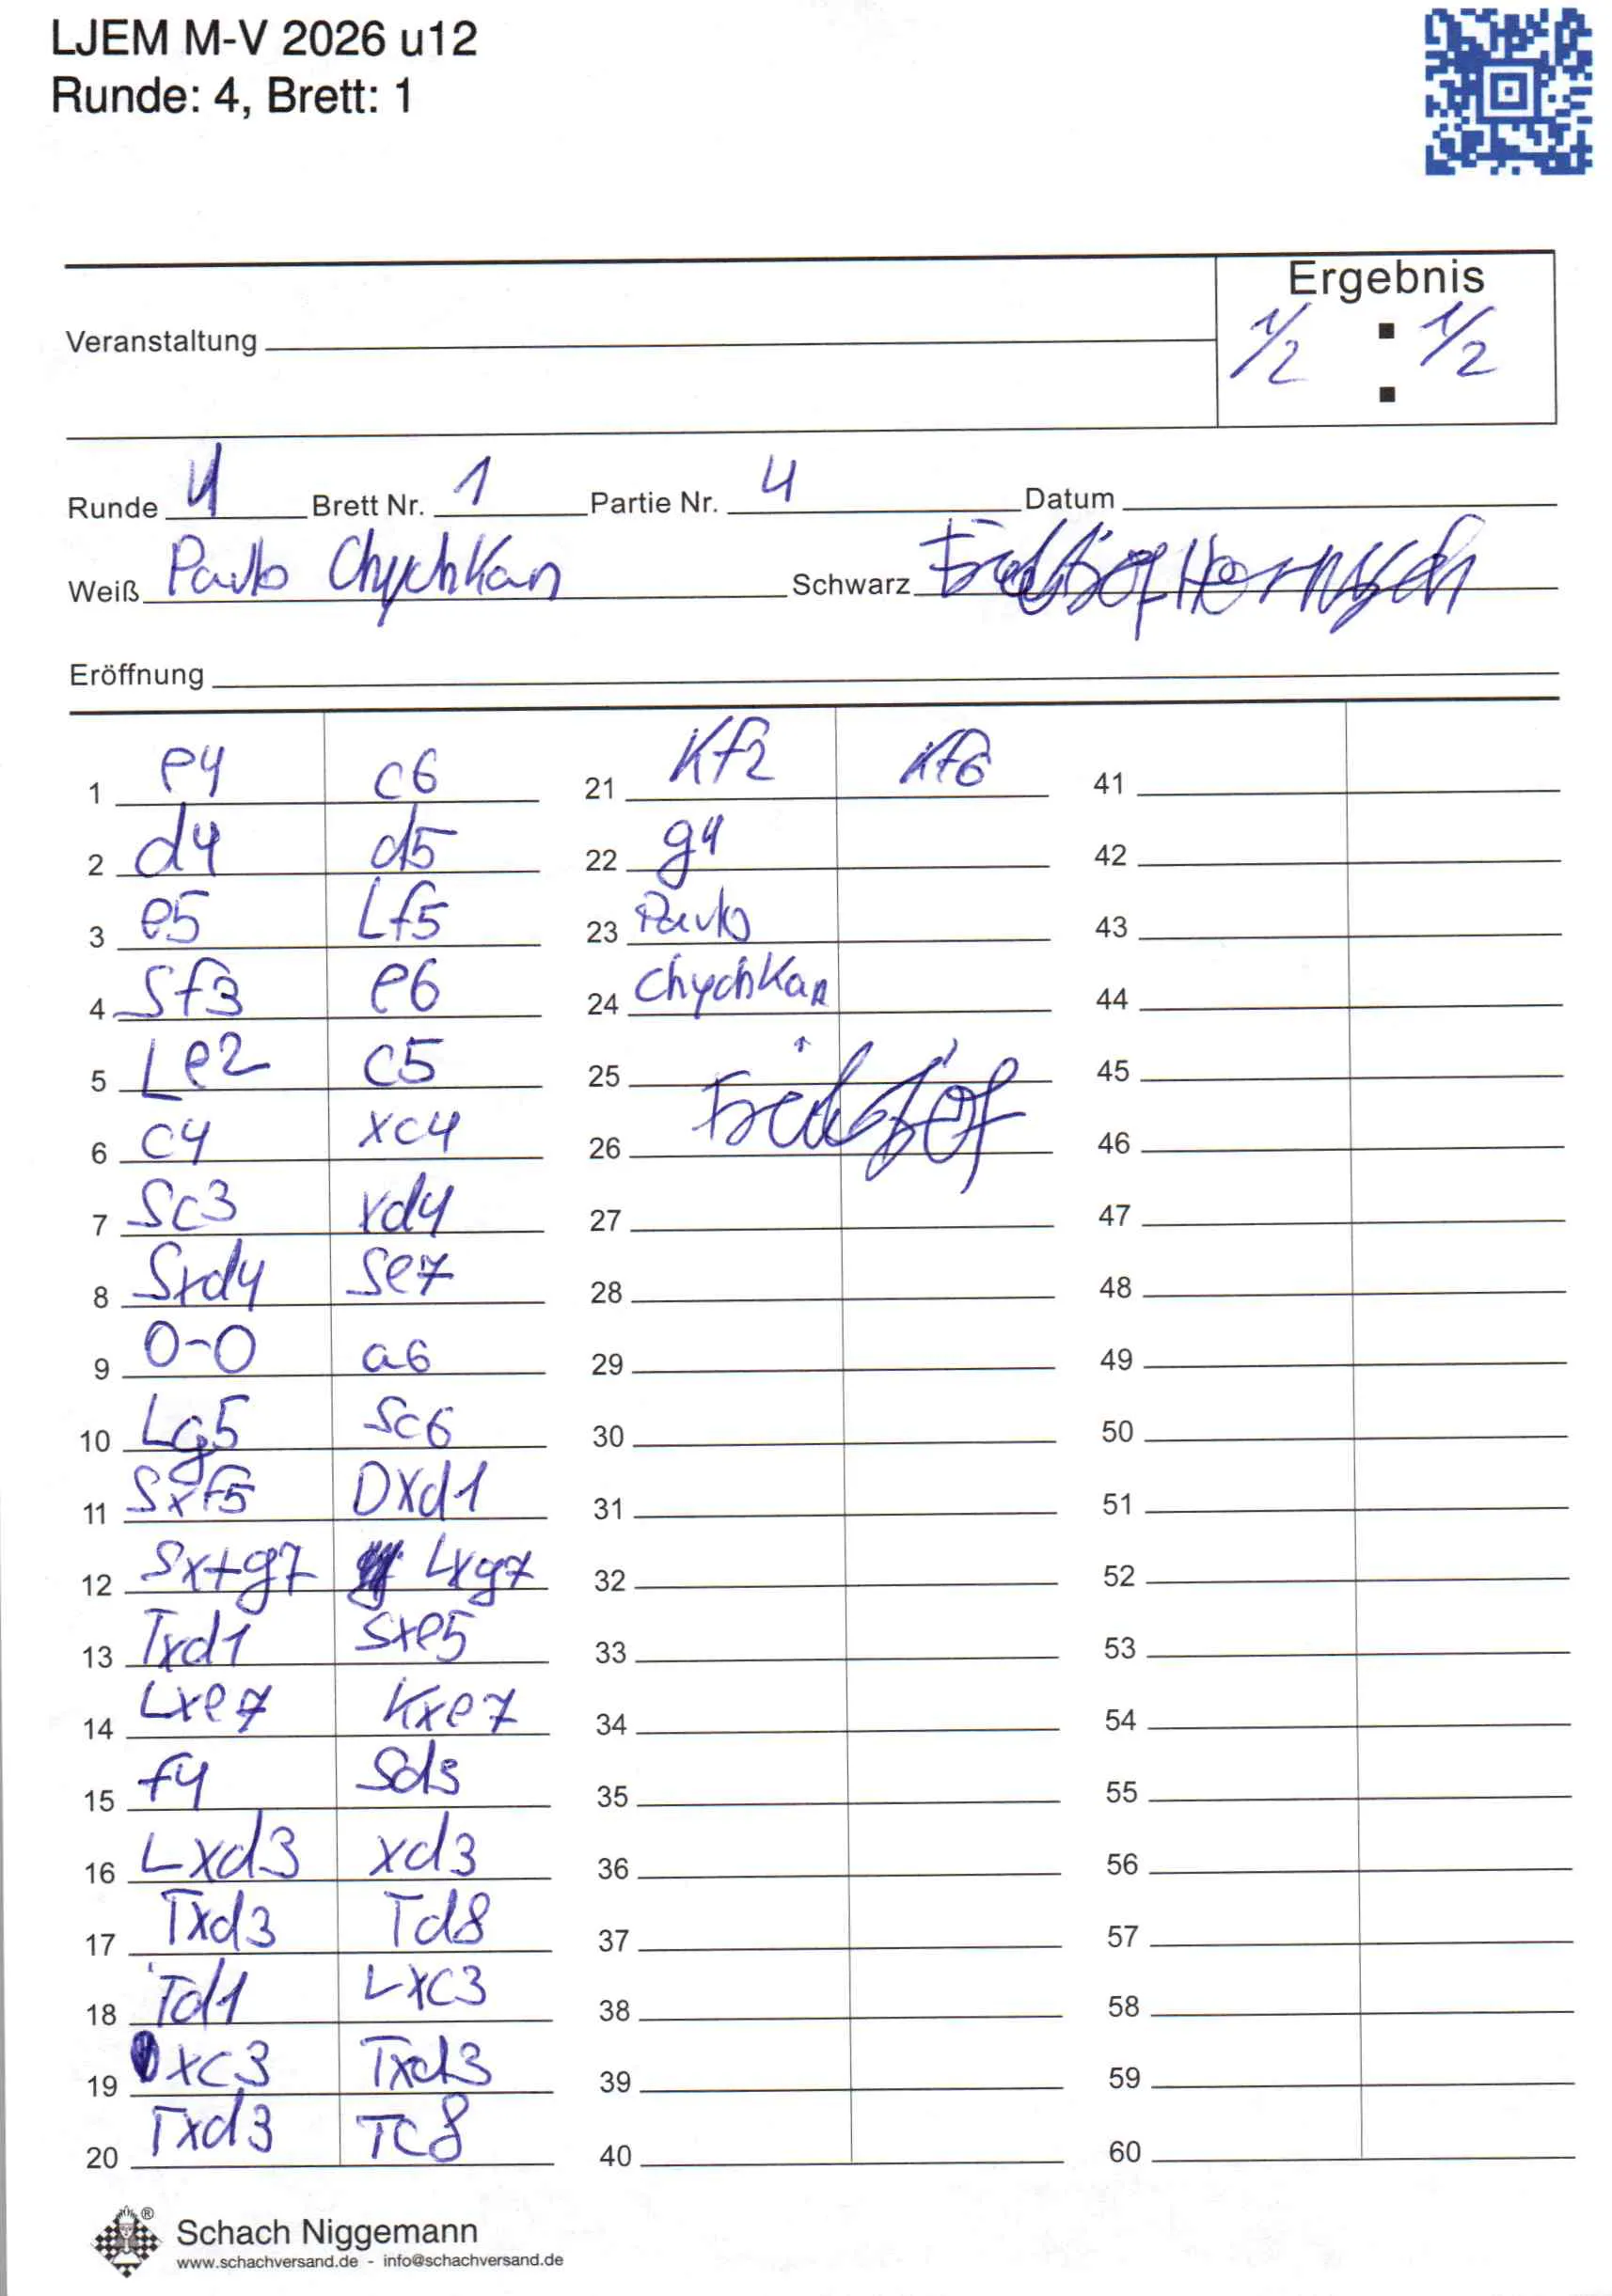 LJEM M-V 2026 u12
Runde: 4, Brett: 1
Ergebnis
Veranstaltung
1/2 : 1/2
Runde 4 Brett Nr. 1 Partie Nr. 4 Datum
Weiß Pavlo Chychkan Schwarz
Eröffnung
1 e4 c6 21 Kf2 Kf6 41
2 d4 d5 22 g4 42
3 e5 Lf5 23 Pavlo 43
4 Sf3 e6 24 Chychkan 44
5 Le2 c5 25 45
6 c4 xc4 26 46
7 Sc3 xd4 27 47
8 Sxd4 Se7 28 48
9 0-0 a6 29 49
10 Lg5 Sc6 30 50
11 Sxf5 Dxd1 31 51
12 Sx+g7 Lxg7 32 52
13 Txd1 Sxe5 33 53
14 Lxe7 Kxe7 34 54
15 f4 Sd3 35 55
16 Lxd3 xd3 36 56
17 Txd3 Td8 37 57
18 Td1 Lxc3 38 58
19 xc3 Txd3 39 59
20 Txd3 Tc8 40 60
Schach Niggemann
www.schachversand.de - info@schachversand.de